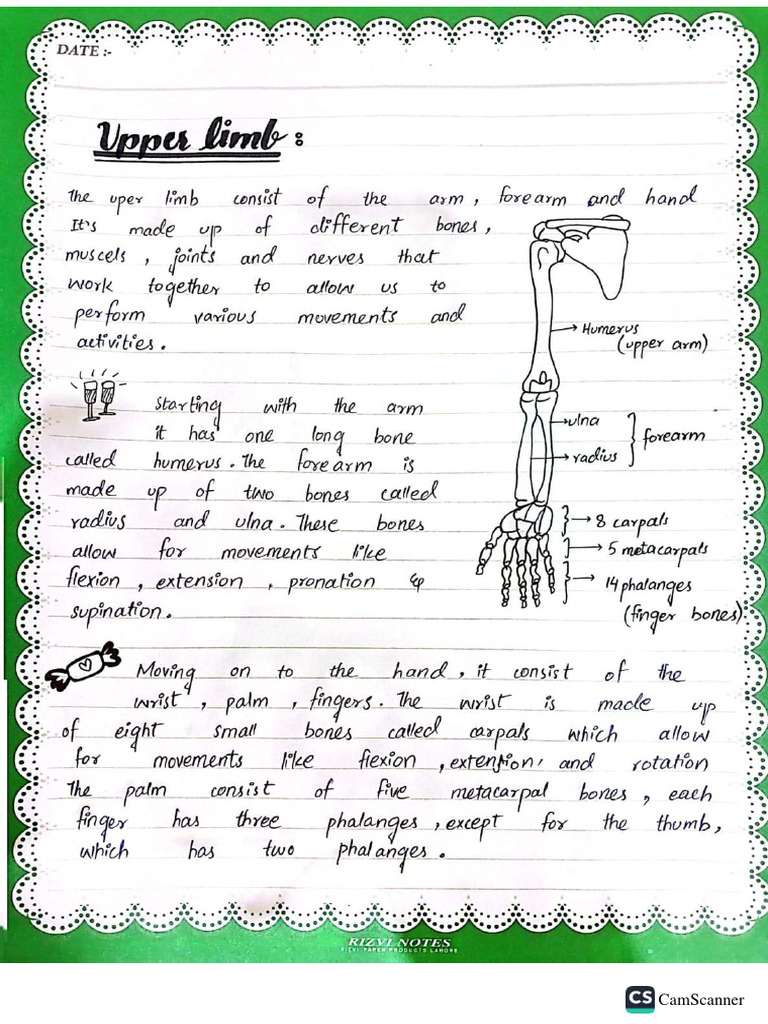 DATE :-
Upper limb :
The uper limb consist of the arm, forearm and hand
It's made up of different bones,
muscels, joints and nerves that
work together to allow us to
perform various movements and
activities.
→ Humerus
(upper arm)
Starting with the arm
it has one long bone
called humerus. The forearm is
made up of two bones called
radius and ulna. These bones
allow for movements like
flexion, extension, pronation &
supination.
→ ulna
→ radius
forearm
→ 8 carpals
→ 5 metacarpals
→ 14 phalanges
(finger bones).
Moving on to the hand, it consist of the
wrist, palm, fingers. The wrist is made up
of eight small bones called carpals which allow
for movements like flexion, extension, and rotation
The palm consist of five metacarpal bones, each
finger has three phalanges, except for the thumb,
which has two phalanges.
RIZVI NOTES
RIZVI PAPER PRODUCTS LAHORE
CS CamScanner